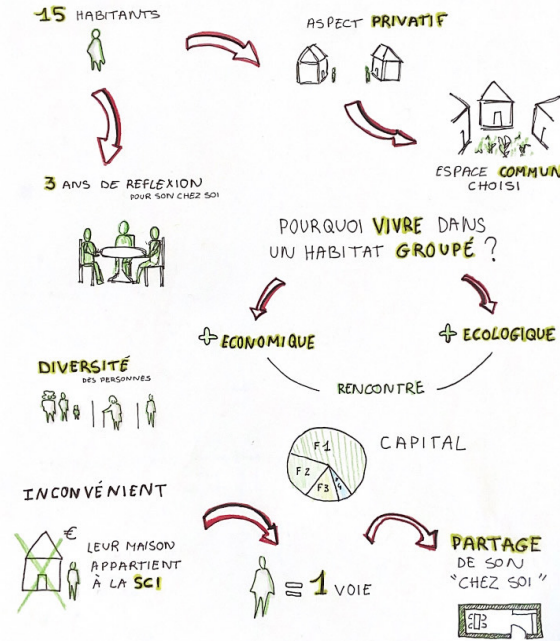 15 HABITANTS
ASPECT PRIVATIF
ESPACE COMMUN
CHOISI
3 ANS DE REFLEXION
POUR SON CHEZ SOI
POURQUOI VIVRE DANS
UN HABITAT GROUPÉ ?
+ ECONOMIQUE
+ ECOLOGIQUE
RENCONTRE
DIVERSITÉ
DES PERSONNES
CAPITAL
F1
F2
F3
INCONVÉNIENT
€
LEUR MAISON
APPARTIENT
À LA SCI
= 1 VOIE
PARTAGE
DE SON
"CHEZ SOI"